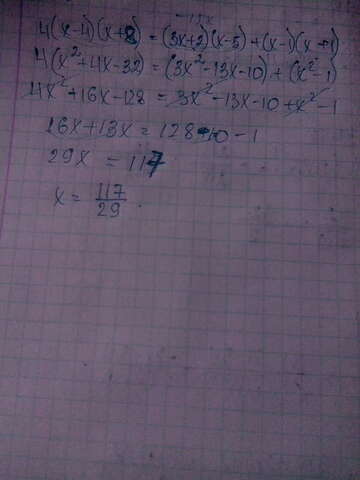 -15x
4(x-4)(x+8)=(3x+2)(x-5)+(x-1)(x+1)
4(x²+4x-32)=(3x²-13x-10)+(x²-1)
4x²+16x-128=3x²-13x-10+x²-1
26x+13x=128-10-1
29x=117
x=117/29.